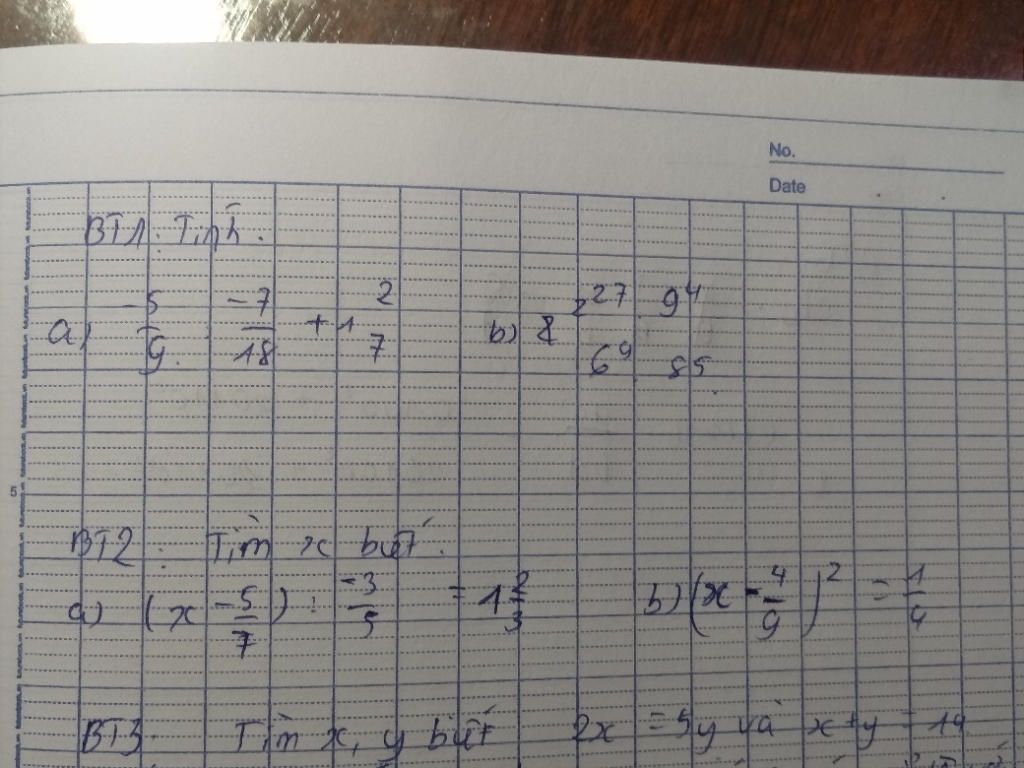 No.
Date
BT1: Tính.
a, -5/9 : -7/18 + 1 2/7 b) 8 2^27 . 9^4 / 6^9 . 8^5
5
BT2: Tìm x biết.
a) (x - 5/7) : -3/5 = 1 2/3 b) (x - 4/9)^2 = 1/4
BT3: Tìm x, y biết 2x = 5y và x + y = 14